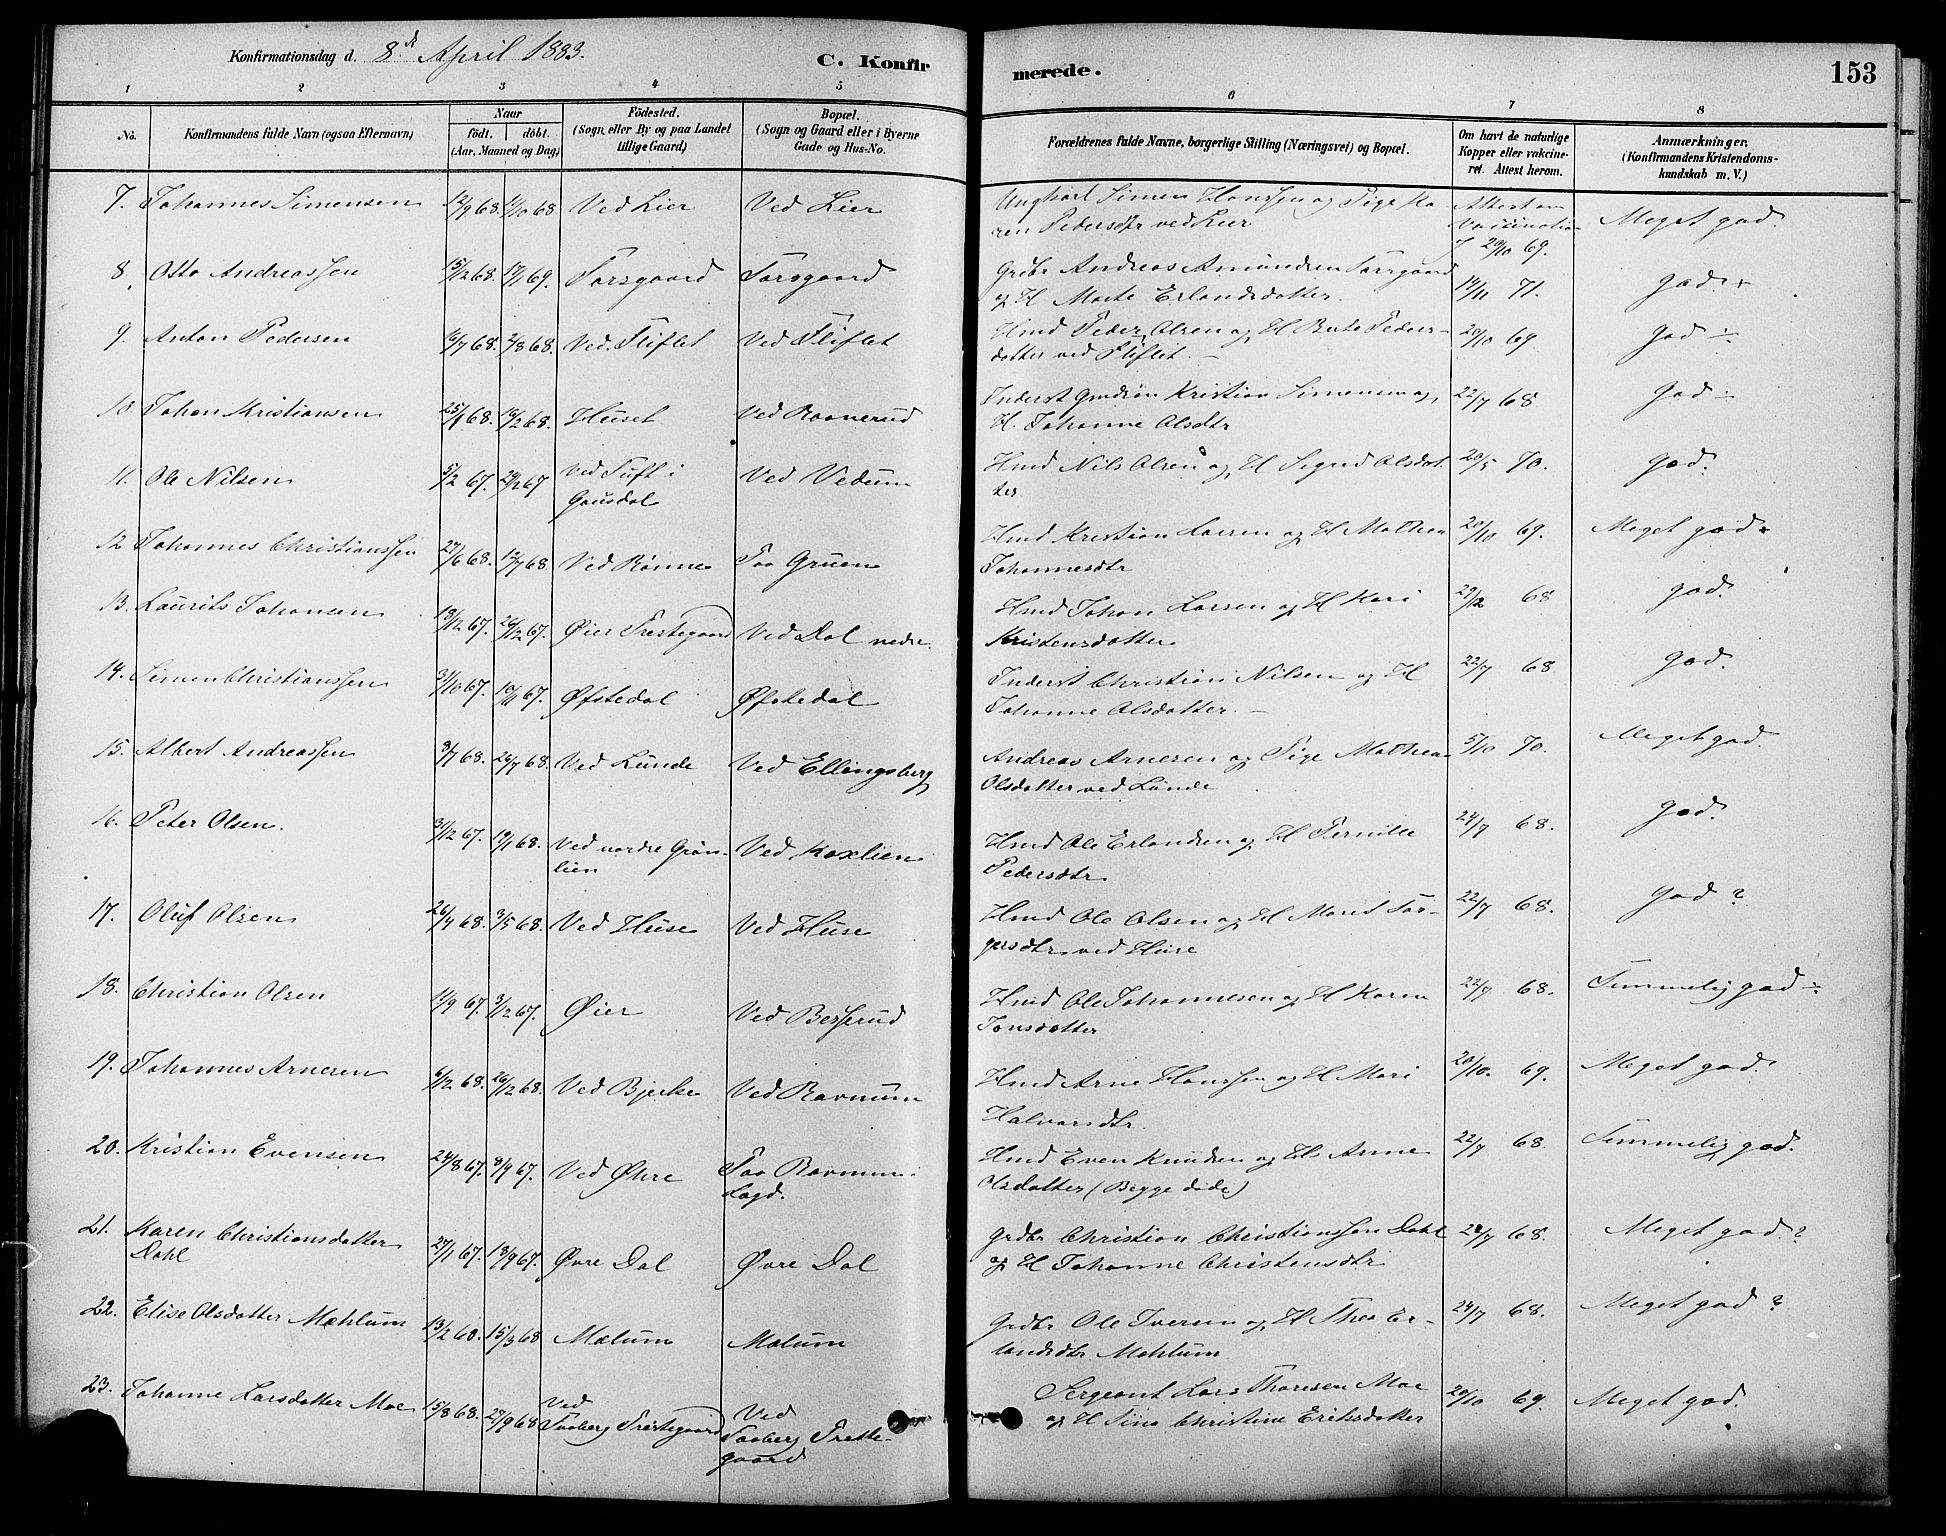 Konfirmationsdag d. 8de April 1883.
C. Konfirmerede.
153
1 2 3 4 5 6 7 8
No.
Konfirmandens fulde Navn (ogsaa Efternavn)
Naar
født. døbt.
(Aar, Maaned og Dag)
Fødested.
(Sogn eller By og paa Landet
tillige Gaard)
Bopæl.
(Sogn og Gaard eller i Byerne
Gade og Hus-No.
Forældrenes fulde Navne, borgerlige Stilling (Næringsvei) og Bopæl.
Om havt de naturlige
Kopper eller vakcine-
ret. Attest herom.
Anmærkninger.
(Konfirmandens Kristendoms-
kundskab m. V.)
7. Johannes Simensen 12/9 68. 11/10 68 Ved Lier Ved Lier Ungkarl Simen Hanssen og Pige Ka-
ren Pedersdtr ved Lier Attest om Vaccination 29/10 69. Meget god.
8. Otto Andreassen 15/12 68. 17/1 69. Forsgaard Forsgaard Grdbr Andreas Amundsen Forsgaard
og H Marte Erlandsdatter. 14/11 71. god +
9. Anton Pedersen 16/7 68. 2/8 68. Ved Fliflet Ved Fliflet Hmd Peder Olsen og H Berte Peders-
datter ved Fliflet. — 20/10 69 god ÷
10. Johan Kristiansen 25/1 68. 16/2 68. Huset Ved Raanerud Inderst Kristian Simensen og
H. Johanne Olsdtr 22/7 68 god ÷
11. Ole Nilsen 5/2 67. 24/2 67 Ved Tuft i
Gausdal Ved Vedum Hmd Nils Olsen og H Sigrid Olsdat-
ter 20/5 70. god.
12 Johannes Christianssen 27/6 68. 12/7 68. Ved Rønne Paa Gruen Hmd Kristian Larsen og H Mathea
Johannesdtr 20/10 69. Meget god +
13. Laurits Johansen 13/12 67. 26/12 67. Øier Prestegaard Ved Dal nedre. Hmd Johan Larsen og H Kari
Kristensdatter 29/12 68 god.
14. Simen Christianssen 31/10 67. 10/11 67. Øfstedal Øfstedal Inderst Christian Nilsen og H
Johanne Olsdatter. — 22/7 68 god.
15. Albert Andreassen 8/7 68. 26/7 68. Ved Lunde Ved Ellingsberg Andreas Arnesen og Pige Mathea
Olsdatter ved Lunde 5/10 70. Meget god.
16. Peter Olsen. 31/12 67. 19/1 68. Ved nordre Grøn-
lien Ved Koxlien Hmd Ole Erlandsen og H Pernille
Pedersdtr 24/7 68. god.
17. Oluf Olsen 26/4 68. 3/5 68. Ved Huse Ved Huse Hmd Ole Olsen og H Marit Tor-
gersdtr ved Huse 22/7 68. god ?
18. Christian Olsen 11/9 67. 3/12 67. Øier Ved Besserud Hmd Ole Johannesen og H Karen
Jonsdatter 22/7 68. Temmelig god ÷
19. Johannes Arnesen 6/12 68. 26/12 68. Ved Bjerke Ved Ravnum Hmd Arne Hanssen og H Mari
Halvorsdtr. 20/10. 69. Meget god.
20. Kristian Evensen 24/8 67. 8/9 67. Ved Øvre Paa Ravnum.
Lagd. Hmd Even Knudsen og H. Anne
Olsdatter (Begge døde) 22/7 68. Temmelig god.
21. Karen Christiansdatter
Dahl 27/1 67. 13/9 67. Øvre Dal Øvre Dal Grdbr Christian Christianssen Dahl
og H Johanne Christensdtr 24/7 68. Meget god. ?
22. Elise Olsdatter Mæhlum 13/2 68. 15/3 68 Mælum Mælum Grdbr Ole Iversen og H Thea Er-
landsdtr Mæhlum 24/7 68. Meget god ?
23. Johanne Larsdatter Moe 15/8 68. 27/9 68 Ved
Faaberg Prestegaard Ved
Faaberg Preste-
gaard Sergeant Lars Thoresen Moe
og H Sina Christine Eriksdatter 20/10 69. Meget god.